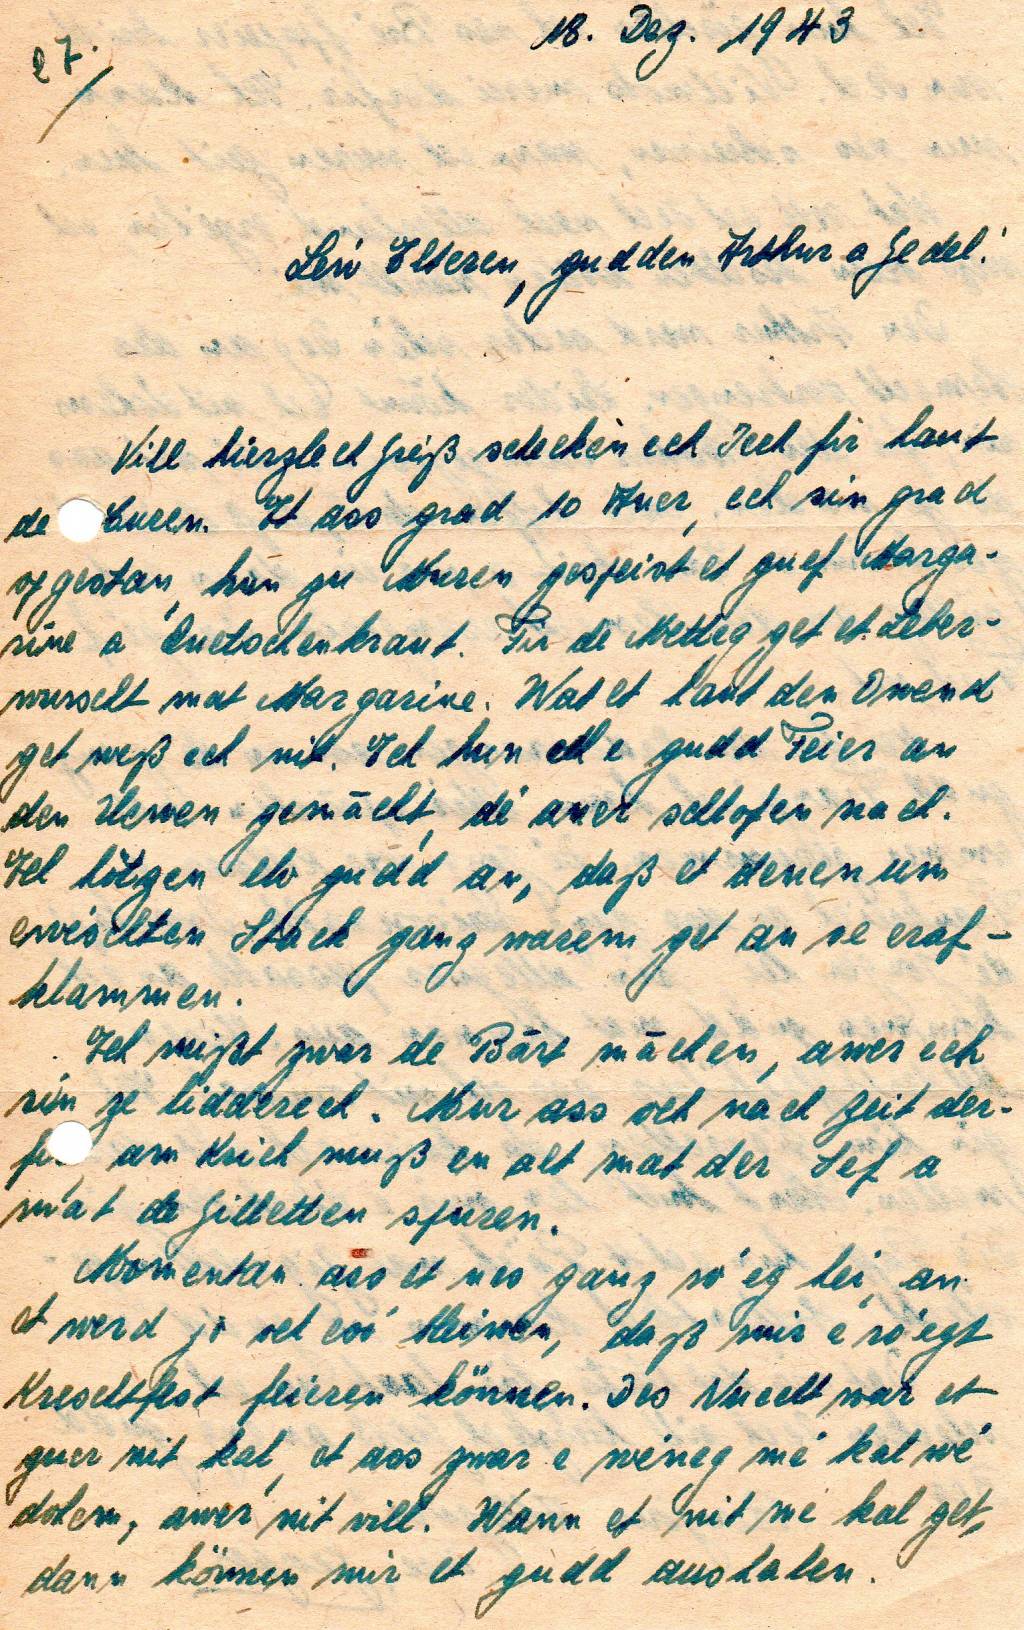 27.
18. Dez. 1943
Léiv Elteren, gudden Arthur a Jedel!
Vill hierzlech Gréiß schecken ech Iech fir haut
de Muren. Et ass grad 10 Auer, ech sin grad
opgestan, hun zu Muren gespeist et guef Marga-
rine a Quetschenkraut. Fir de Metteg get et Leber-
wurscht mat Margarine. Wat et haut den Owend
get weß ech nit. Ech hun e gudd Feier an
den Uewen gemächt, dé aner schlofen nach.
Ech hötzen elo gudd an, daß et denen um
ewéschten Stack ganz warem get an se eraf-
klammen.
Ech mißt zwar de Bärt mächen, awer ech
sin ze lidderech. Mur ass och nach Zeit der-
fir am Krich muß en alt mat der Sef a
mat de Gilletten spuren.
Momentan ass et nes ganz ró'eg hei, an
et werd jo och esó bleiwen, daß mir e ró'egt
Kreschtfest feieren können. Des Nuecht war et
guer nit kal, et ass zwar e wéneg mé kal wé
dohem, awer nit vill. Wann et nit mé kal get,
dann können mir et gudd aushalen.